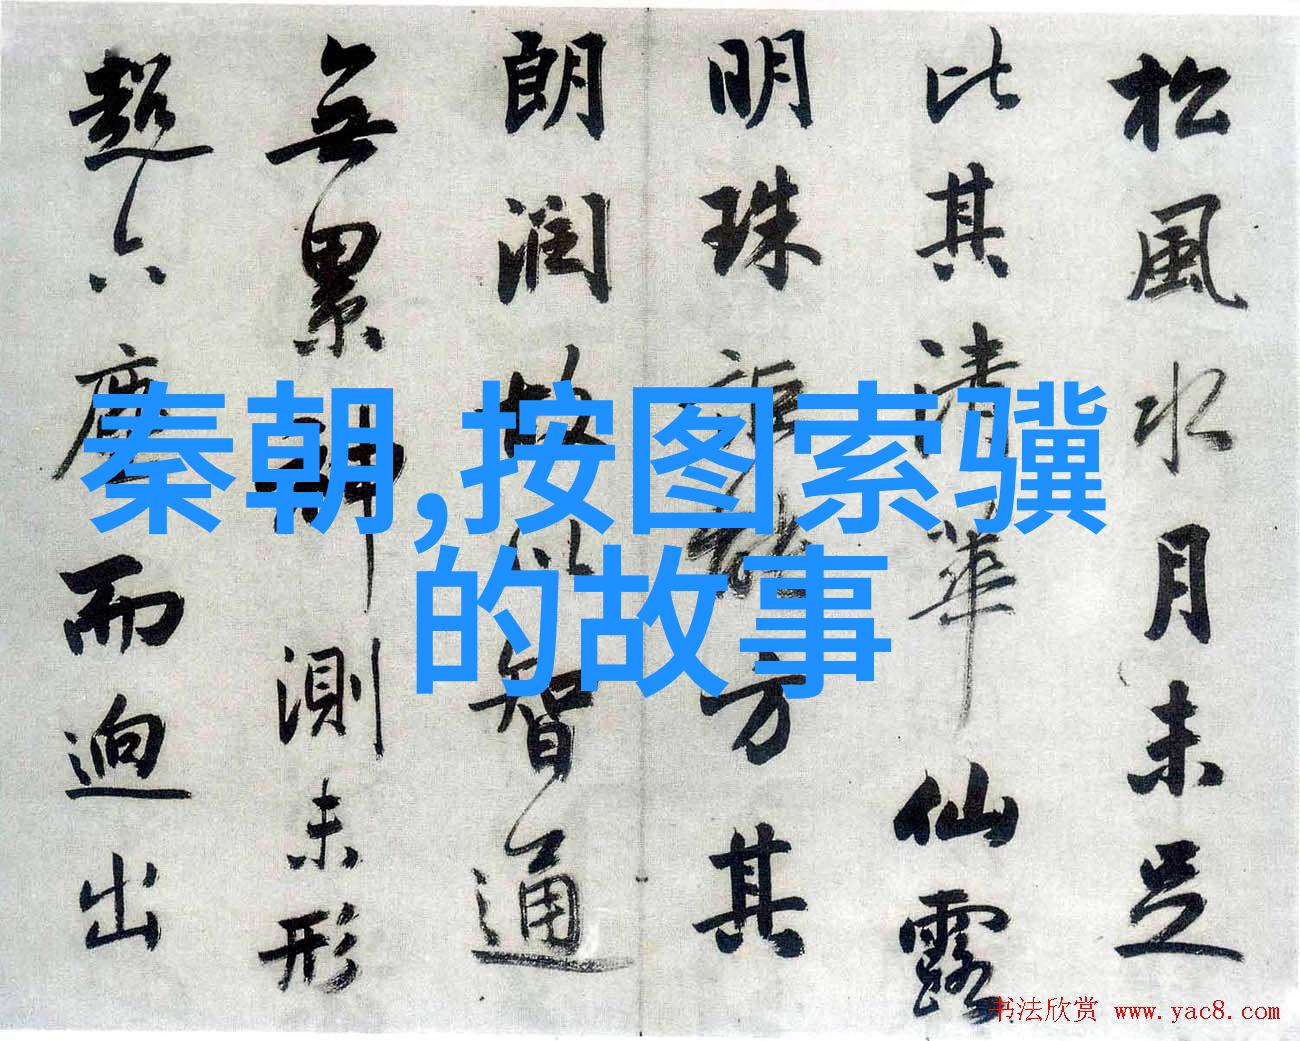 松風水月未足
比其清華仙露
明珠詎能方其
朗潤故以智通
無累神測未形
超六塵而迥出
秦朝,按图索骥
的故事
书法欣赏 www.yac8.com